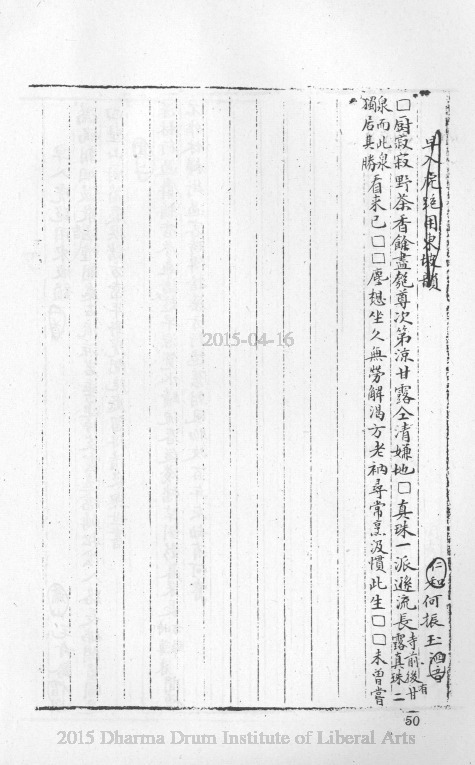 早入虎跑用東坡韻
仁和何振玉
□厨寂寂野茶香餘盡匏尊次第涼甘露仝清嫌地□真珠一派遜流長寺前後有甘露真珠二
泉而此泉獨居其勝看来已□□塵想坐久無勞解渴方老衲尋常烹汲慣此生□□未曽嘗
50
2015-04-16
2015 Dharma Drum Institute of Liberal Arts